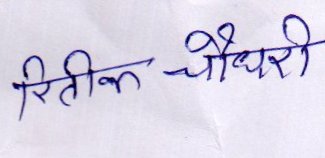 रितीक चौधरी